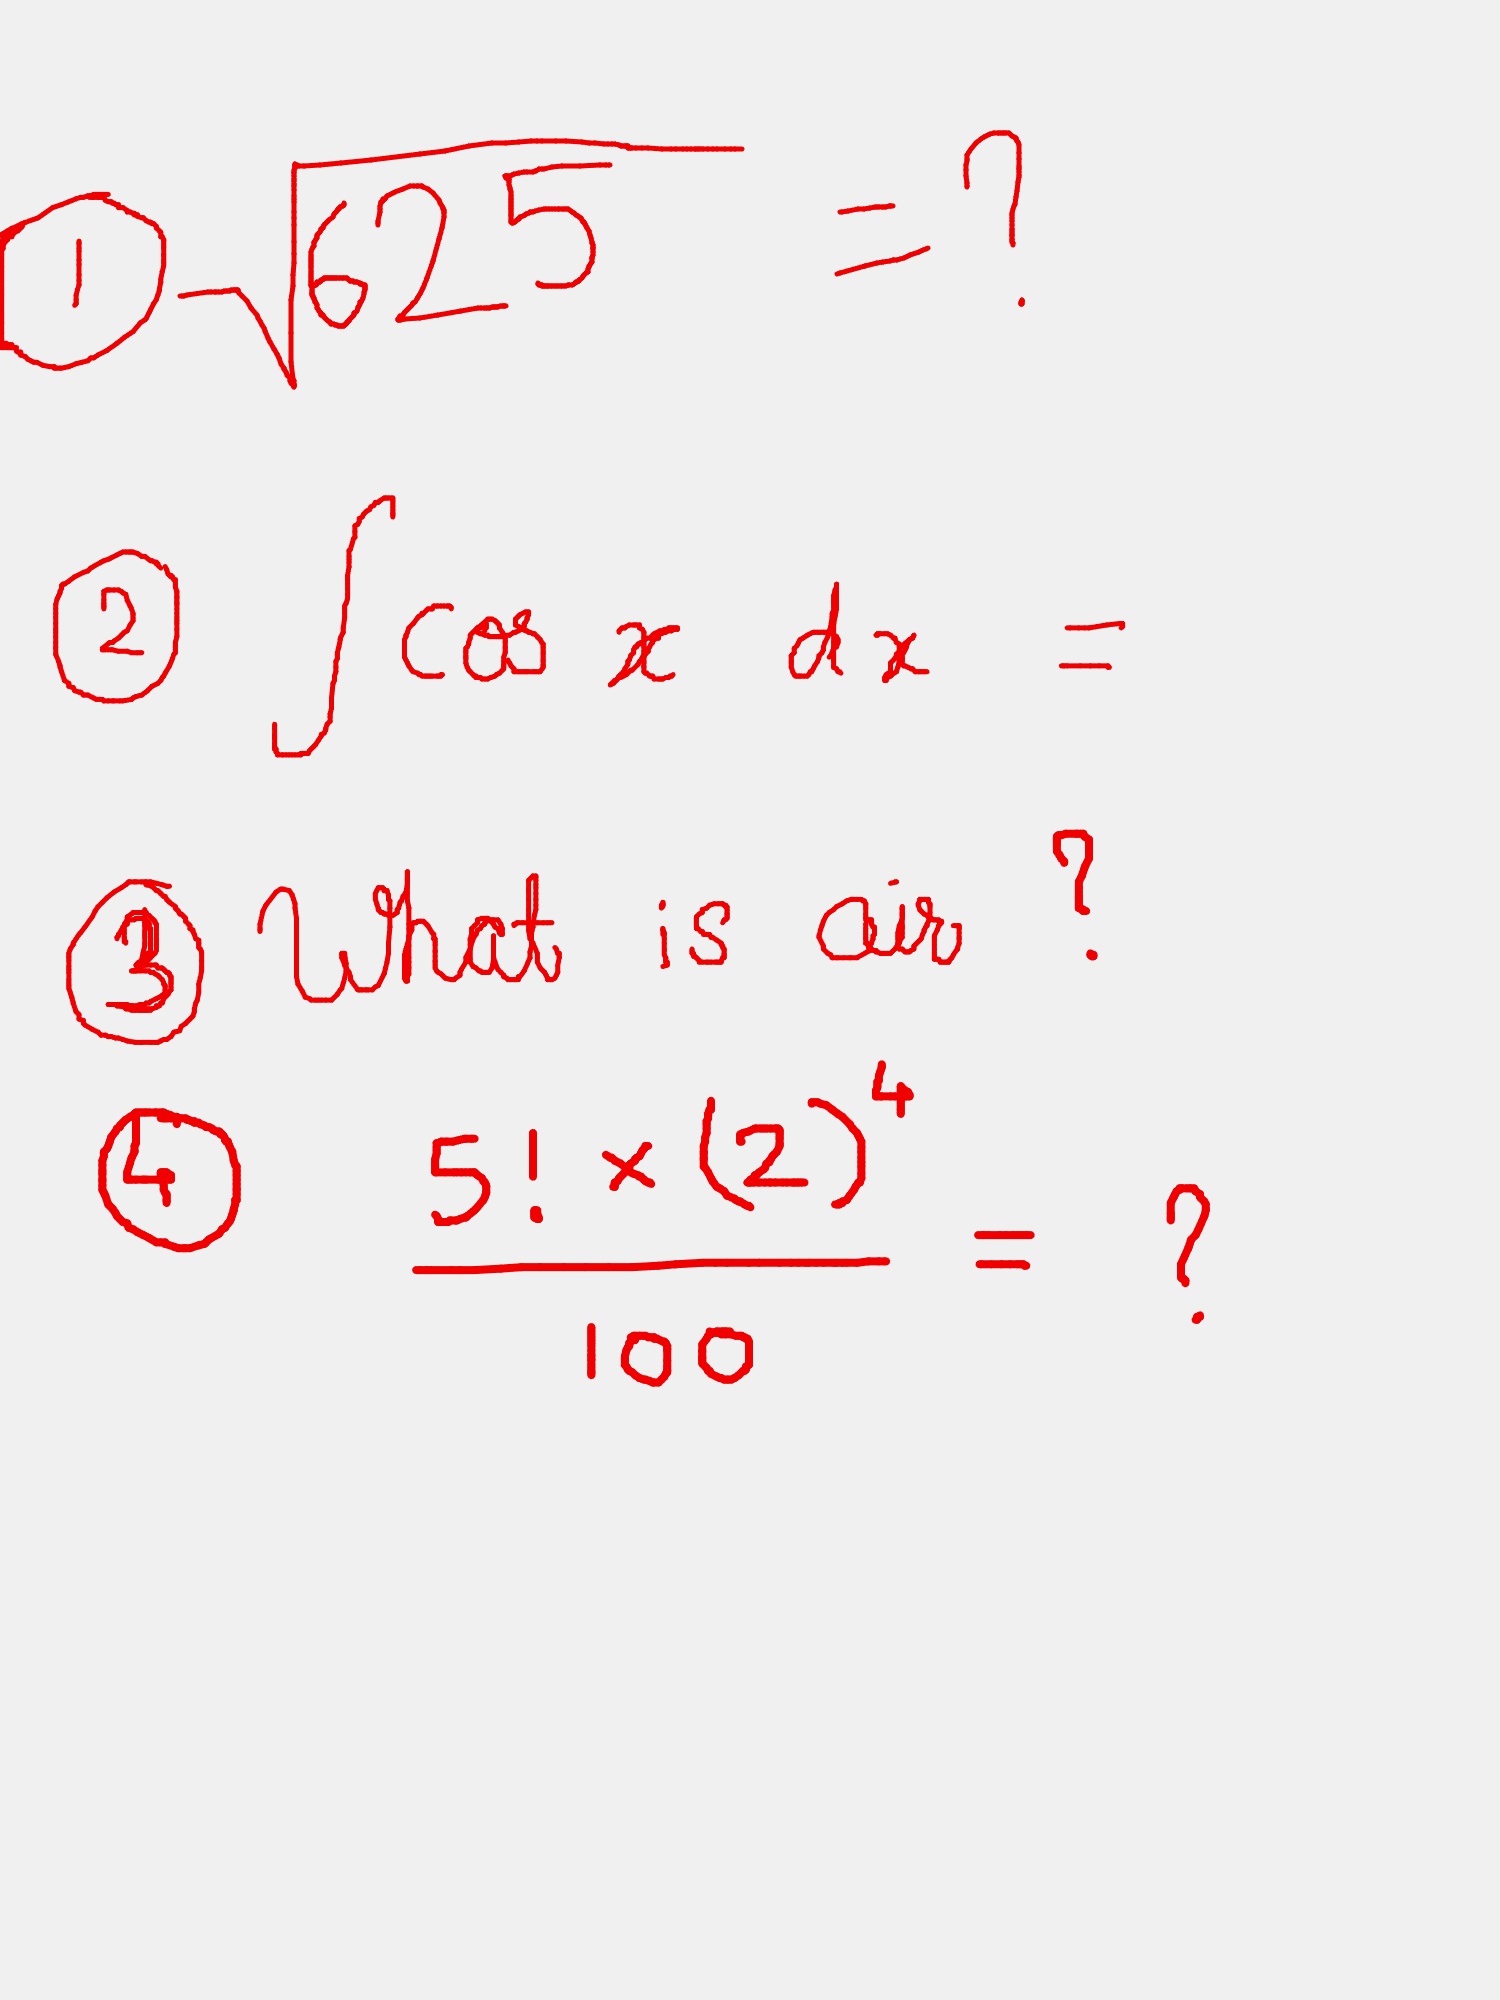 ① √625 = ?
② ∫ cos x dx =
③ What is air ?
④ 5! × (2)⁴
= ?
100